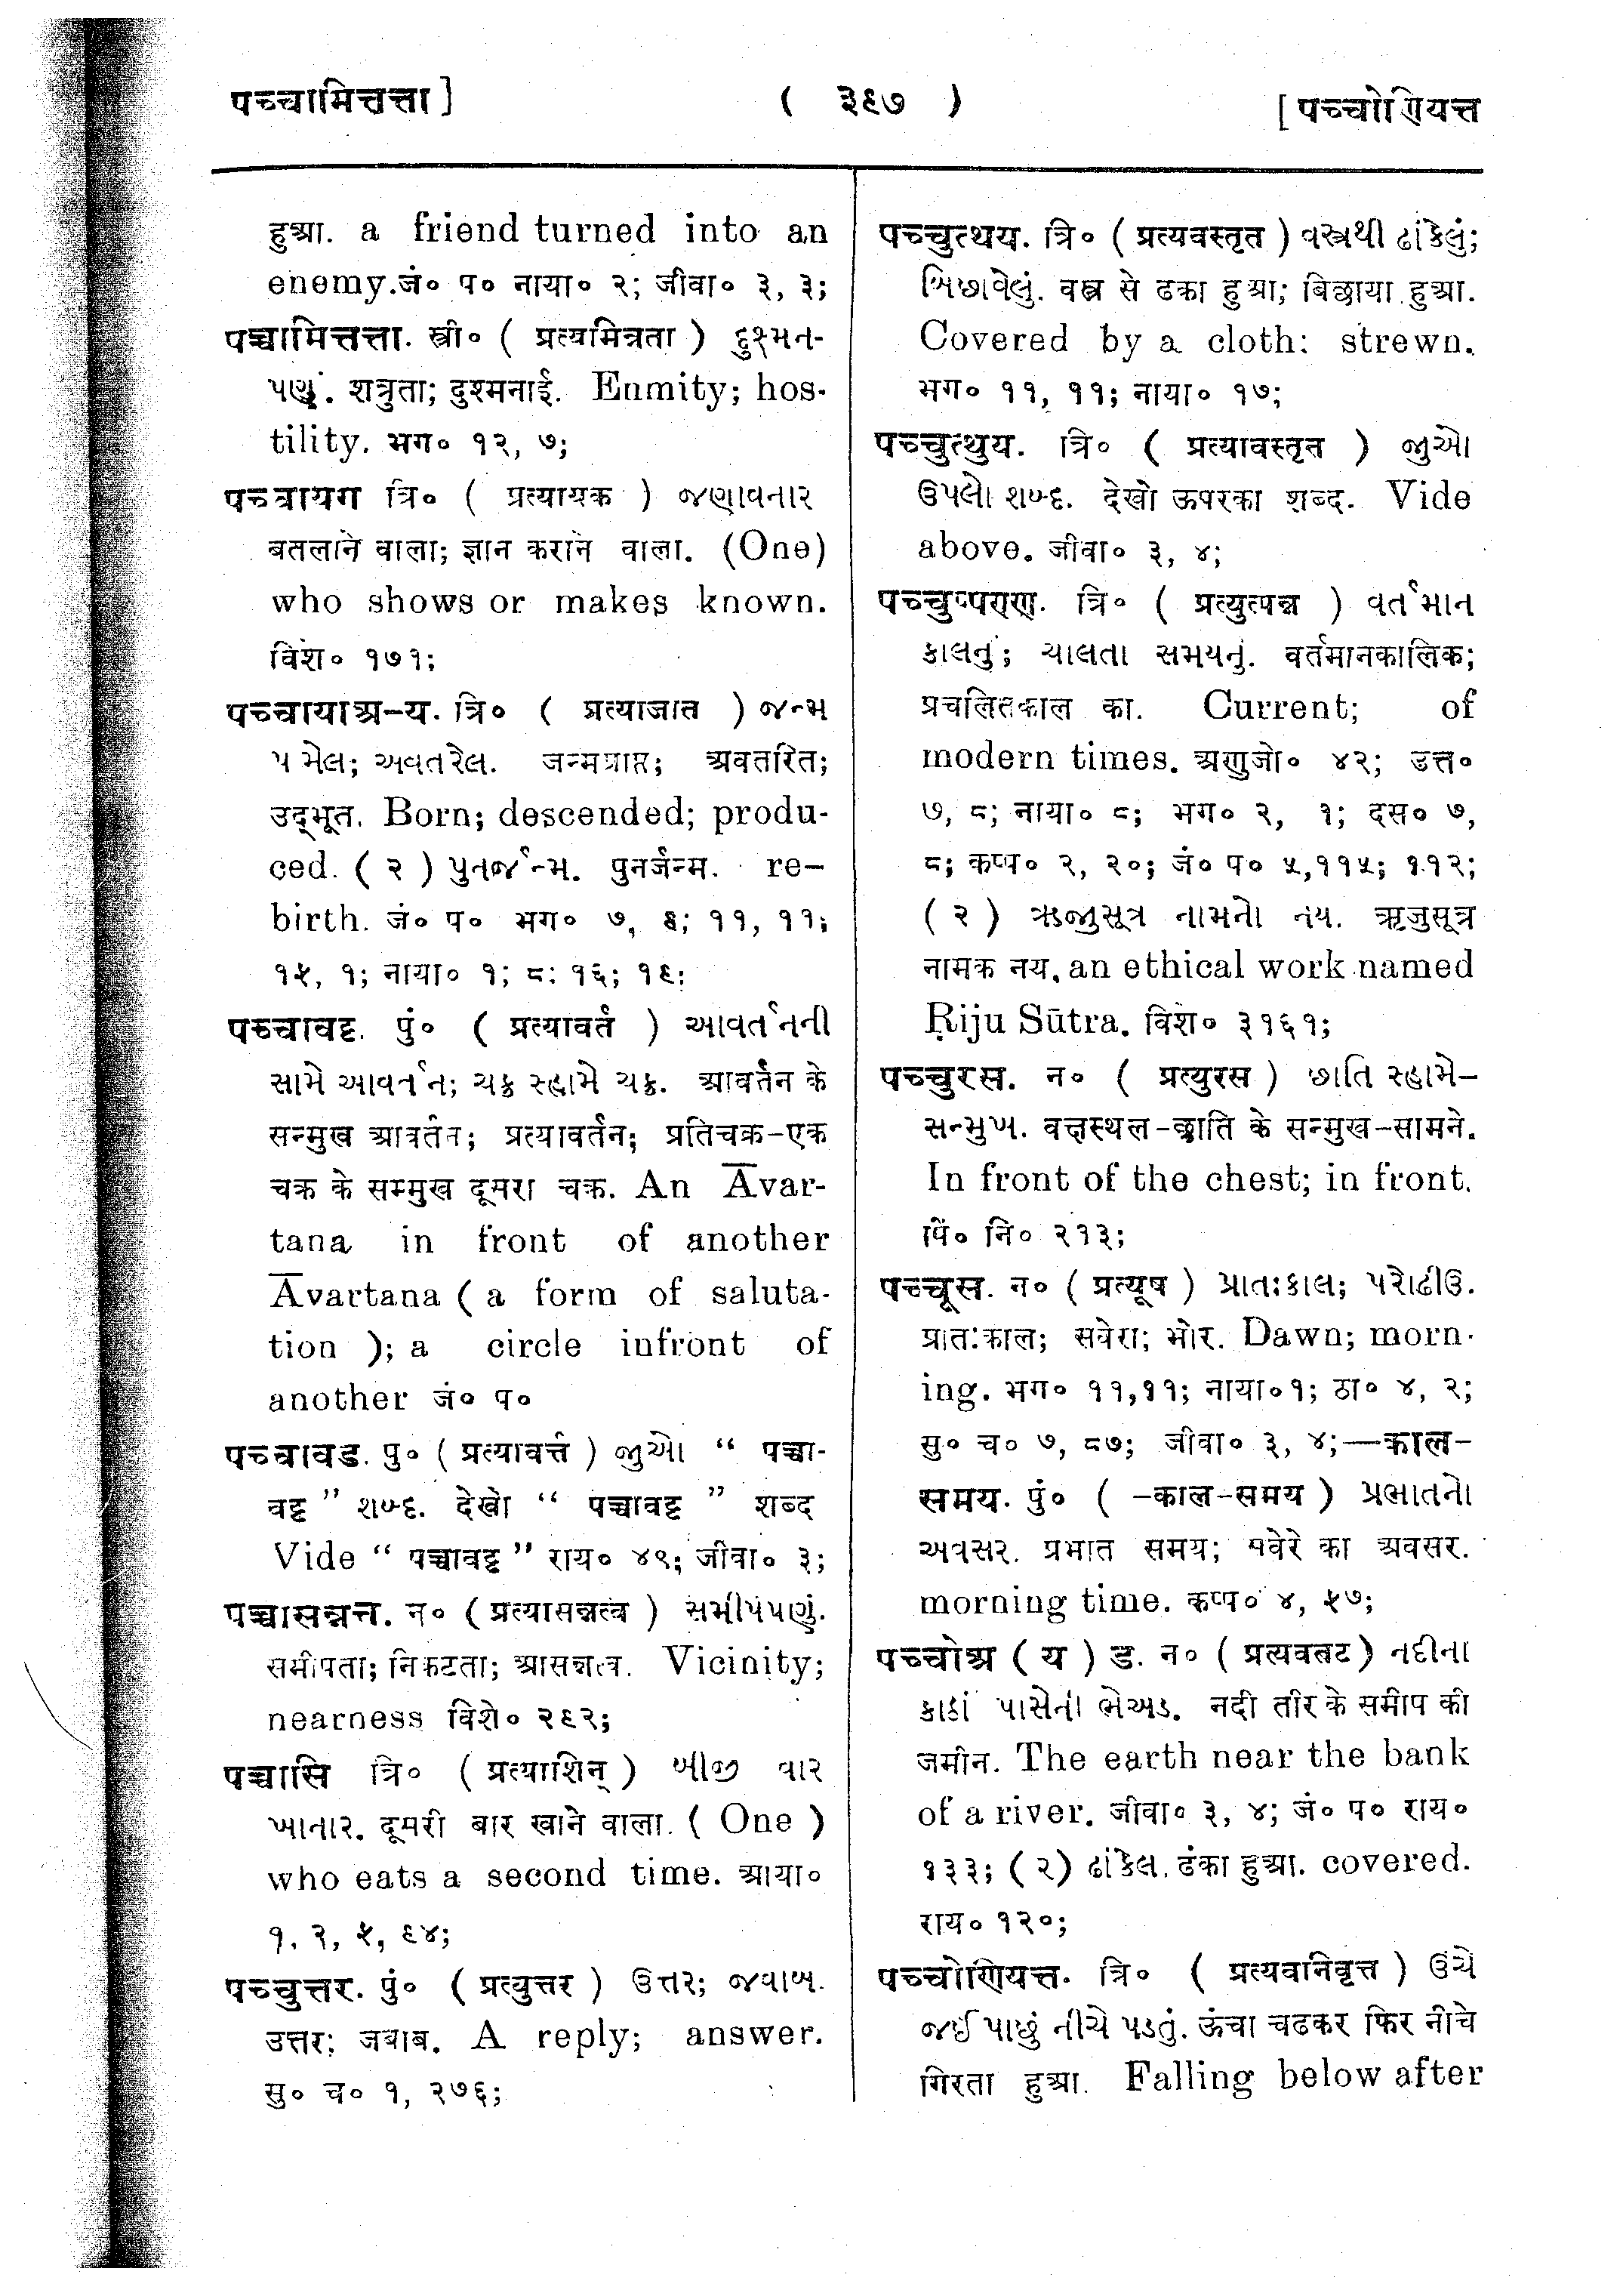 पच्चामित्तत्ता ]
( ३९७ )
[ पच्चोणियत्त
हुआ. a friend turned into an
enemy.जं० प० नाया० २; जीवा० ३, ३;
पच्चामित्तत्ता. स्त्री० ( प्रत्यमित्रता ) દુશ્મન-
પણું. शत्रुता; दुश्मनाई. Enmity; hos-
tility. भग० १२, ७;
पच्चायग त्रि० ( प्रत्यायक ) જણાવનાર
बतलाने वाला; ज्ञान कराने वाला. (One)
who shows or makes known.
विशे० १७१;
पच्चायाअ-य. त्रि० ( प्रत्याजात ) જન્મ
પામેલ; અવતરેલ. जन्मप्राप्त; अवतरित;
उद्भूत. Born; descended; produ-
ced. ( २ ) પુનર્જન્મ. पुनर्जन्म. re-
birth. जं० प० भग० ७, ६; ११, ११;
१५, १; नाया० १; ८; १६; १९;
पच्चावट्ट. पुं० ( प्रत्यावर्त ) આવર્તનની
સામે આવર્તન; ચક્ર સ્હામે ચક્ર. आवर्तन के
सन्मुख आवर्तन; प्रत्यावर्तन; प्रतिचक्र-एक
चक्र के सम्मुख दूसरा चक्र. An Āvar-
tana in front of another
Āvartana ( a form of saluta-
tion ); a circle infront of
another जं० प०
पच्चावड. पु० ( प्रत्यावर्त्त ) જુઓ “ पच्चा-
वट्ट ” શબ્દ. देखो “ पच्चावट्ट ” शब्द
Vide “ पच्चावट्ट ” राय० ४९; जीवा० ३;
पच्चासन्नत्त. न० ( प्रत्यासन्नत्व ) સમીપપણું.
समीपता; निकटता; आसन्नत्व. Vicinity;
nearness विशे० २९२;
पच्चासि त्रि० ( प्रत्याशिन् ) બીજી વાર
ખાનાર. दूसरी बार खाने वाला. ( One )
who eats a second time. आया०
१, २, ५, ९४;
पच्चुत्तर. पुं० ( प्रत्युत्तर ) ઉત્તર; જવાબ.
उत्तर; जवाब. A reply; answer.
सु० च० १, २७६;
पच्चुत्थय. त्रि० ( प्रत्यवस्तृत ) વસ્ત્રથી ઢાંકેલું;
બિછાવેલું. वस्त्र से ढका हुआ; बिछाया हुआ.
Covered by a cloth: strewn.
भग० ११, ११; नाया० १७;
पच्चुत्थुय. त्रि० ( प्रत्यावस्तृत ) જુઓ
ઉપલો શબ્દ. देखो ऊपरका शब्द. Vide
above. जीवा० ३, ४;
पच्चुप्पण्ण. त्रि० ( प्रत्युत्पन्न ) વર્તમાન
કાલનું; ચાલતા સમયનું. वर्तमानकालिक;
प्रचलितकाल का. Current; of
modern times. अणुजो० ४२; उत्त०
७, ८; नाया० ८; भग० २, १; दस० ७,
८; कप्प० २, २०; जं० प० ५,११५; ११२;
( २ ) ઋજુસૂત્ર નામનો નય. ऋजुसूत्र
नामक नय. an ethical work named
Ṛiju Sūtra. विशे० ३१६१;
पच्चुरस. न० ( प्रत्युरस ) છાતિ સ્હામે-
સન્મુખ. वक्षस्थल-छाति के सन्मुख-सामने.
In front of the chest; in front.
पिं० नि० २१३;
पच्चूस. न० ( प्रत्यूष ) પ્રાતઃકાલ; પરોઢીઉ.
प्रातःकाल; सवेरा; भोर. Dawn; morn-
ing. भग० ११,११; नाया० १; ठा० ४, २;
सु० च० ७, ८७; जीवा० ३, ४;—काल-
समय. पुं० ( -काल-समय ) પ્રભાતનો
અવસર. प्रभात समय; सवेरे का अवसर.
morning time. कप्प० ४, ५७;
पच्चोअ ( य ) ड. न० ( प्रत्यवतट ) નદીના
કાઠાં પાસેની ભેખડ. नदी तीर के समीप की
जमीन. The earth near the bank
of a river. जीवा० ३, ४; जं० प० राय०
१३३; ( २ ) ઢાંકેલ. ढंका हुआ. covered.
राय० १२०;
पच्चोणियत्त. त्रि० ( प्रत्यवानिवृत्त ) ઉંચે
જઈ પાછું નીચે પડતું. ऊंचा चढकर फिर नीचे
गिरता हुआ. Falling below after